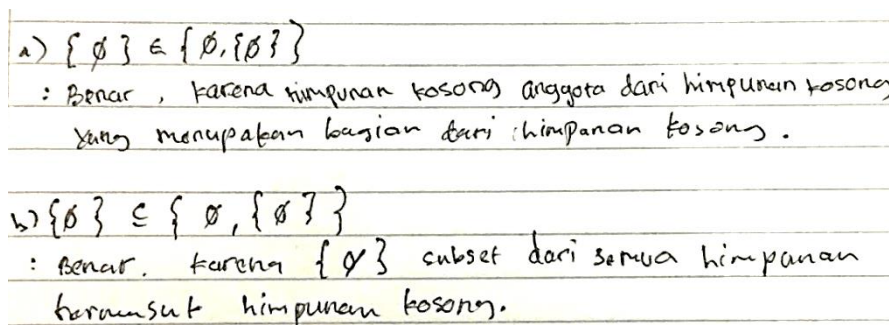 a) { ∅ } ∈ { ∅, {∅} }
: Benar, karena himpunan kosong anggota dari himpunan kosong
yang merupakan bagian dari himpunan kosong.
b) {∅} ⊆ { ∅, {∅} }
: Benar. karena {∅} subset dari semua himpunan
termasuk himpunan kosong.